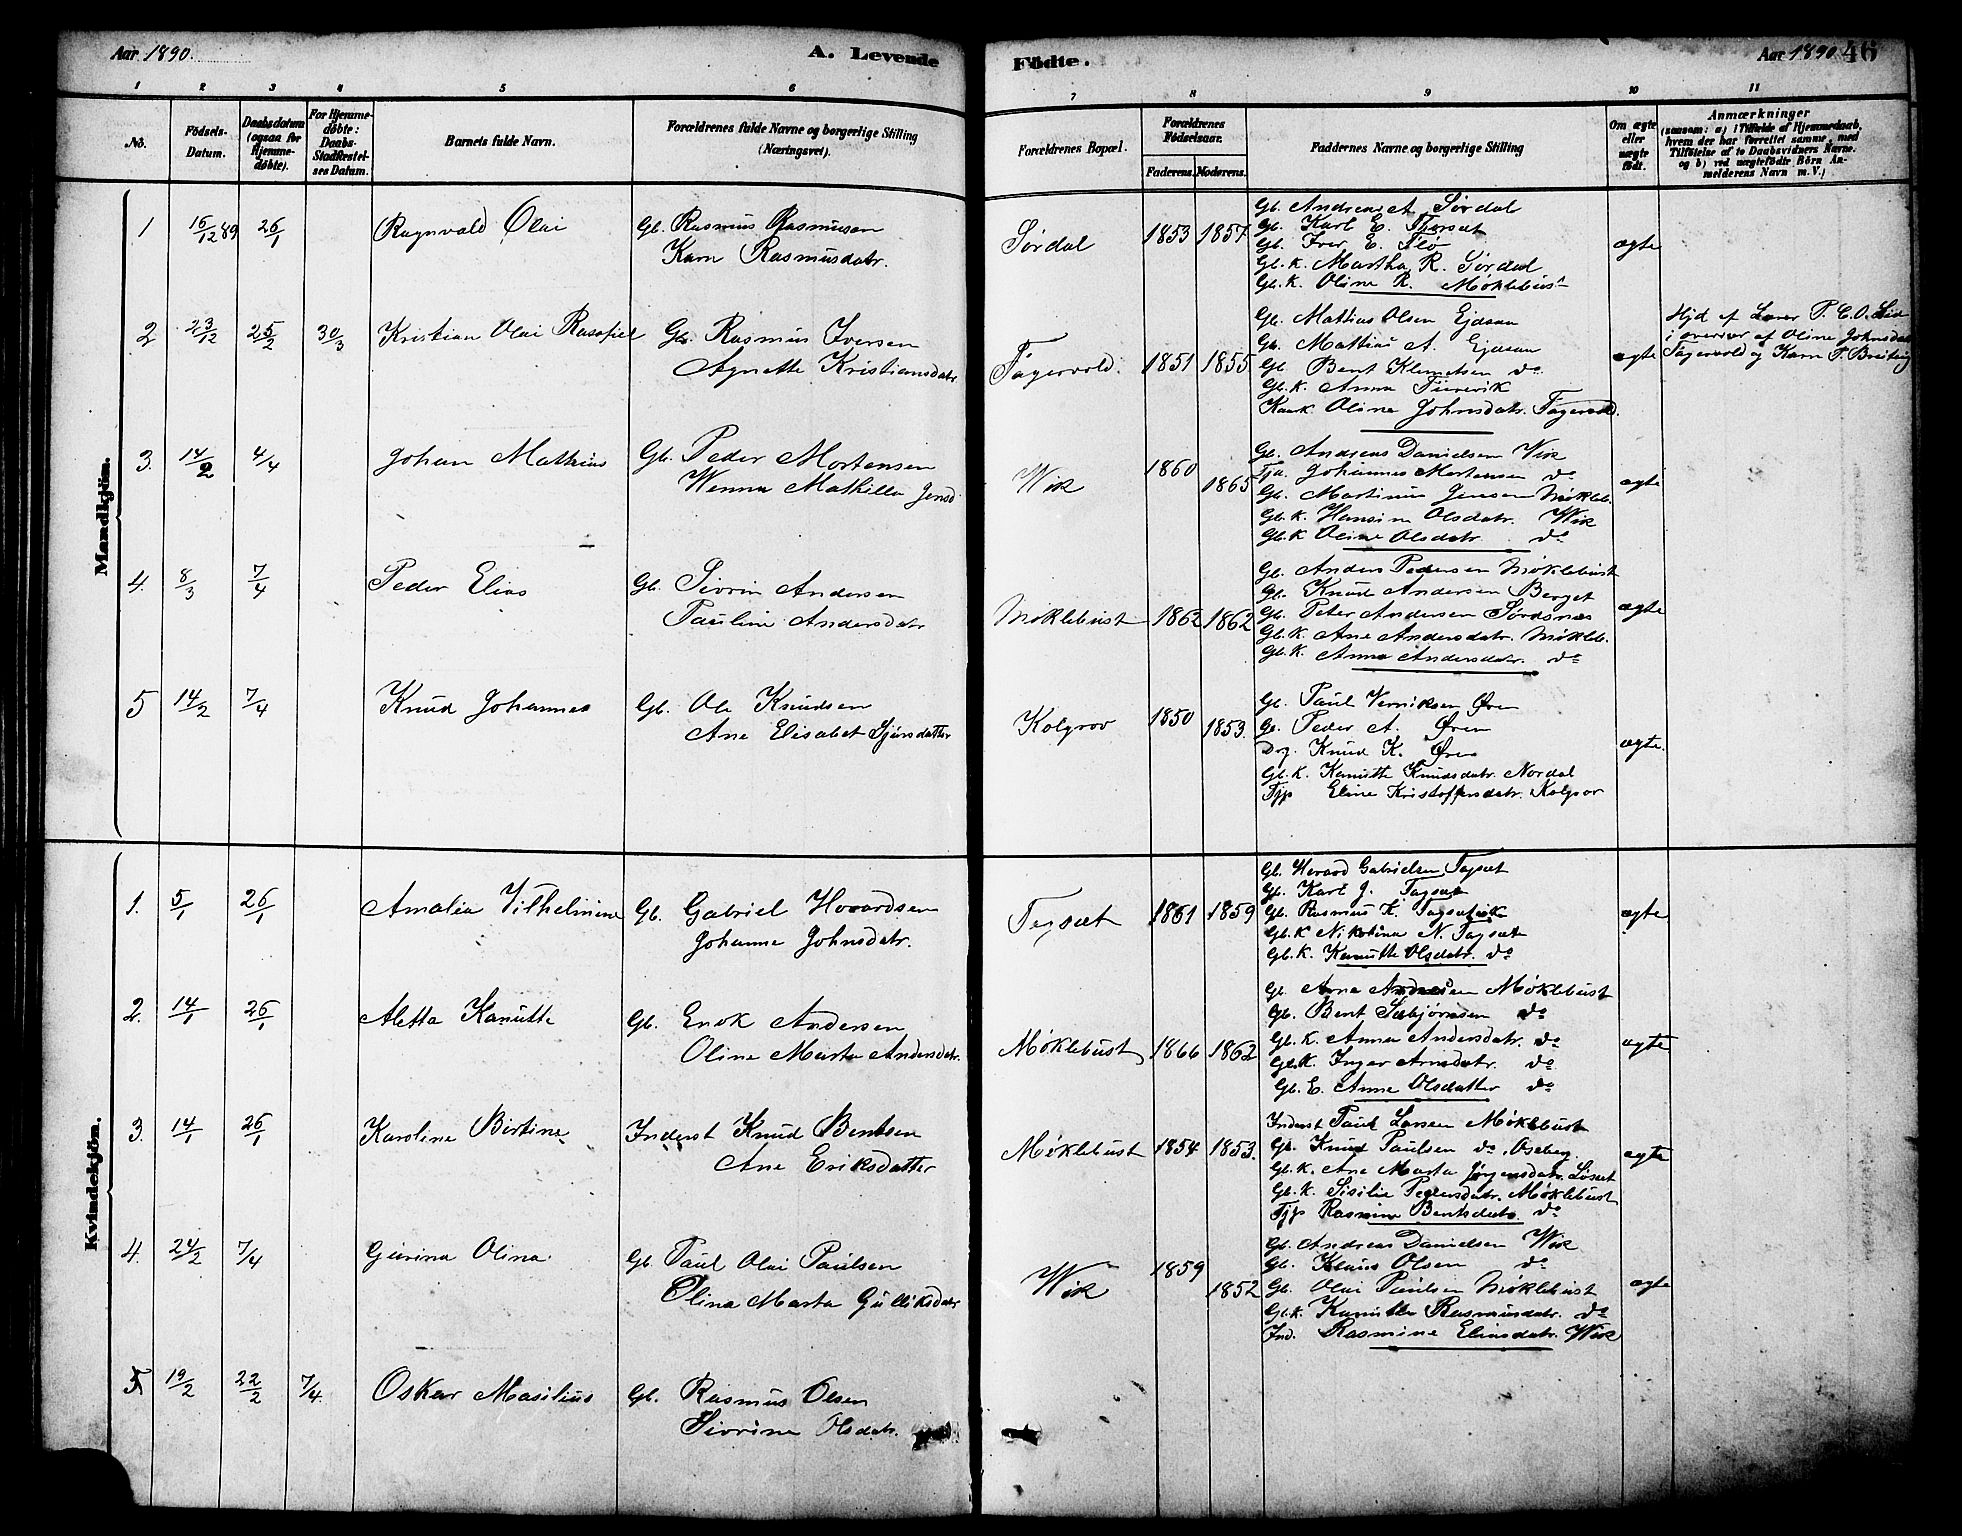 Aar 1890.
A. Levende
Födte.
Aar 1890
46
1 2 3 4 5 6
7 8 9 10 11
No.
Födsels-Datum.
Daabsdatum (ogsaa for Hjemmedöbte).
For Hjemmedöbte: Daabs-Stadfæstelses Datum.
Barnets fulde Navn.
Forældrenes fulde Navne og borgerlige Stilling (Næringsvei).
Forældrenes Bopæl.
Forældrenes Födselsaar.
Faderens. Moderens.
Faddernes Navne og borgerlige Stilling
Om ægte eller uægte födt.
Anmærkninger
(saasom: a) i Tilfælde af Hjemmedaab, hvem der har forrettet samme, med Tilföielse af to Daabsvidners Navne, og b) ved uægtefödte Börn Anmelderens Navn m. V.)
Mandkjön.
1 16/12 89 26/1 Ragnvald Olai
Gb. Rasmus Rasmussen
Karn Rasmusdatr.
Sørdal 1853 1857
Gb. Andreas A. Sørdal
Gb. Karl E.
Gb. Iver E. Flø
Gb. K. Martha R. Sørdal
Gb. K. Oline R. Møklebust
ægte
2 23/12 25/2 30/3 Kristian Olai
Gb. Rasmus Iversen
Agnette Kristiansdatr
Fagervold. 1851 1855
Gb. Mathias Olsen
Gb. Mathias A.
Gb. Bent Klemetsen do
Gb. K. Anna
Oline Johnsdatr. Fagervold.
ægte
Hjd af Lærer P. C. O.
i overvær af Oline Johnsdatr
Fagervold og Karn P.
3. 14/2 4/4 Johan Mathias
Gb. Peder Mortensen
Wenna Mathilda Jensd
Wik 1860 1865
Gb. Andreas Danielsen Wik
Johannes Mortensen do
Gb. Martinus Jensen Møkleb.
Gb. K. Hansine Olsdatr. Wik
Gb. K Oline Olsdatr. do
ægte
4. 8/3 7/4 Peder Elias
Gb. Sivrin Andersen
Pauline Andersdatr
Møklebust 1862 1862
Gb. Anders Pedersen Møklebust
Gb. Knud Andersen Berget
Gb. Peter Andersen
Gb. K. Ane Andersdatr. Møkleb.
Gb. K. Anna Andersdatr. do
ægte
5 14/2 7/4 Knud Johannes
Gb. Ole Knudsen
Ane Elisabet Sjursdatter
Kolgrov 1850 1853.
Gb. Paul Verniksen Øren
Gb. Peder A. Øren
Knud K. Øren
Gb. K. Kanutte Knudsdatr. Nordal
Tjp Eline Kristoffersdatr. Kolgrov
ægte.
Kvindekjön.
1. 5/1 26/1 Amalia Vilhelmine
Gb. Gabriel Hovardsen
Johanne Johnsdatr.
Tegsæt 1861 1859
Gb. Gabrielsen Tagsæt
Gb. Karl J. Tagsæt
Gb. Rasmus K.
Gb. K Nikolina N. Tagsæt
Gb. K. Kanutte Olsdatr. do
ægte
2. 14/1 26/1 Aletta Kanutte
Gb. Enok Andersen
Oline Marta Andersdatr.
Møklebust 1866 1862
Gb. Møklebust
Gb. Bent do
Gb. K. Anna Andersdatr. do
Gb. K. Inger Arnsdatr. do
Gb. E. Anne Olsdatter do
ægte
3. 14/1 26/1 Karoline Bertine
Inderst Knud Bentsen
Ane Eriksdatter
Møklebust 1854 1853.
Inderst Paul Larsen Møklebust
Gb. Knud Paulsen do, Oseberg
Gb. K. Ane Marta Jørgensdatr. Løset
Gb. K. Sisilie Pedersdatr. Møklebust
Tjp Rasmine Bentsdatr. do
ægte
4. 24/2 7/4 Gurina Olina
Gb. Paul Olai Paulsen
Olina Marta Gulliksdatr
Wik 1859 1852
Gb. Andreas Danielsen Wik
Gb. Klaus Olsen do
Gb. Olai Paulsen Møklebust
Gb. K. Kanutte Rasmusdatr. do
Ind. Rasmine Eliasdatr. Wik
ægte
5 19/2 22/2 7/4. Oskar Masilius
Gb. Rasmus Olsen
Sivrine Olsdatr.